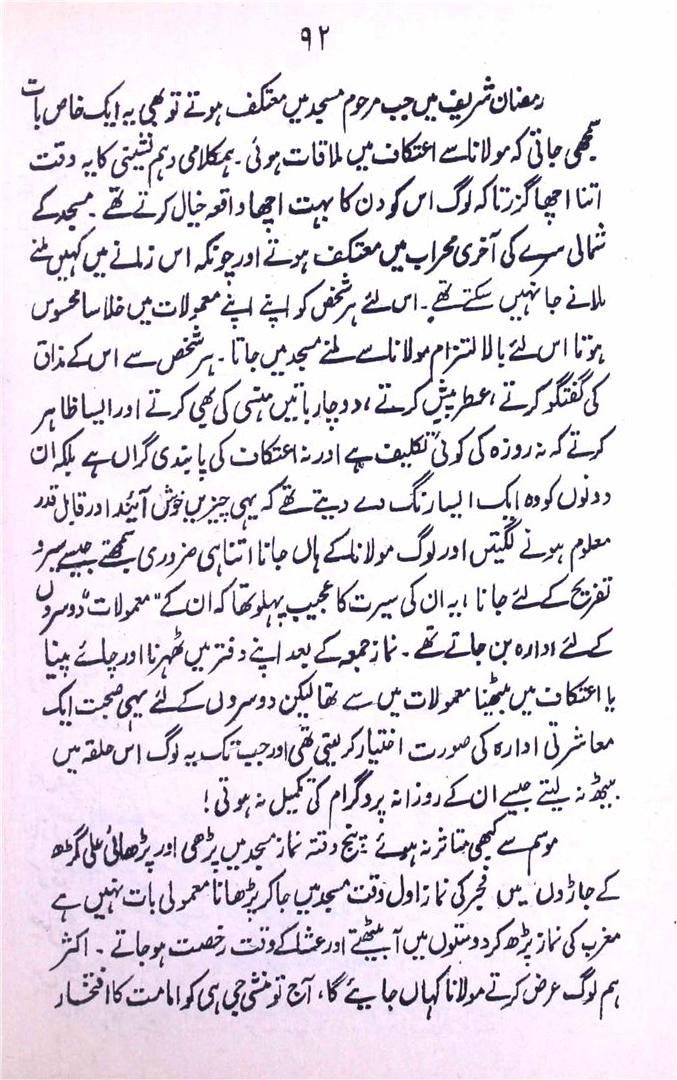 ۹۲
رمضان شریف میں جب مرحوم مسجد میں معتکف ہوتے تو بھی یہ ایک خاص بات
سمجھی جاتی کہ مولانا سے اعتکاف میں ملاقات ہوئی۔ ہمکلامی و ہم نشینی کا یہ وقت
اتنا اچھا گزرتا کہ لوگ اس کو دن کا بہت اچھا واقعہ خیال کرتے تھے۔ مسجد کے
شمالی سرے کی آخری محراب میں معتکف ہوتے اور چونکہ اس زمانے میں کہیں ملنے
ملانے جا نہیں سکتے تھے۔ اس لئے ہر شخص کو اپنے اپنے معمولات میں خلا سا محسوس
ہوتا اس لئے بالالتزام مولانا سے ملنے مسجد میں جاتا۔ ہر شخص سے اس کے مذاق
کی گفتگو کرتے، عطر پیش کرتے، دو چار باتیں ہنسی کی بھی کرتے اور ایسا ظاہر
کرتے کہ نہ روزہ کی کوئی تکلیف ہے اور نہ اعتکاف کی پابندی گراں ہے بلکہ ان
دونوں کو وہ ایک ایسا رنگ دے دیتے تھے کہ یہی چیزیں خوش آئند اور قابل قدر
معلوم ہونے لگتیں اور لوگ مولانا کے ہاں جانا اتنا ہی ضروری سمجھتے جیسے سیر و
تفریح کے لئے جانا، یہ ان کی سیرت کا عجیب پہلو تھا کہ ان کے "معمولات" دوسروں
کے لئے ادارہ بن جاتے تھے۔ نماز جمعہ کے بعد اپنے دفتر میں ٹھہرنا اور چائے پینا
یا اعتکاف میں بیٹھنا معمولات میں سے تھا لیکن دوسروں کے لئے یہی صحبت ایک
معاشرتی ادارہ کی صورت اختیار کر لیتی تھی اور جب تک یہ لوگ اس حلقہ میں
بیٹھ نہ لیتے جیسے ان کے روزانہ پروگرام کی تکمیل نہ ہوتی!
موسم سے کبھی متاثر نہ ہوئے پنج وقتہ نماز مسجد میں پڑھی اور پڑھائی علی گڑھ
کے جاڑوں میں فجر کی نماز اول وقت مسجد میں جا کر پڑھانا معمولی بات نہیں ہے
مغرب کی نماز پڑھ کر دوستوں میں آ بیٹھتے اور عشا کے وقت رخصت ہو جاتے۔ اکثر
ہم لوگ عرض کرتے مولانا کہاں جایئے گا، آج تو منشی جی ہی کو امامت کا افتخار